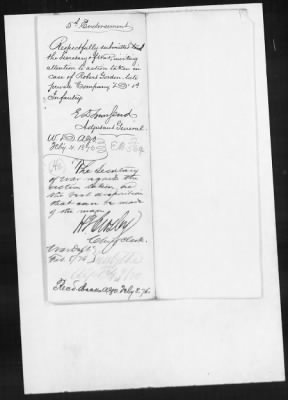 5th Endorsement.
Respectfully submitted to
the Secretary of War, inviting
attention to action taken in
case of Robert Gordon, late
private Company "D" 1st
Infantry.
E D Townsend
Adjutant General.
W. D. A.G.O.
Feby. 4. 1876
The Secretary
of War regards the
action taken as
the best disposition
that can be made
of the case.
H T Crosby
Chief Clerk.
War Dept
Feb. 5/76
Rec'd A.G.O. Feby 8. 76.